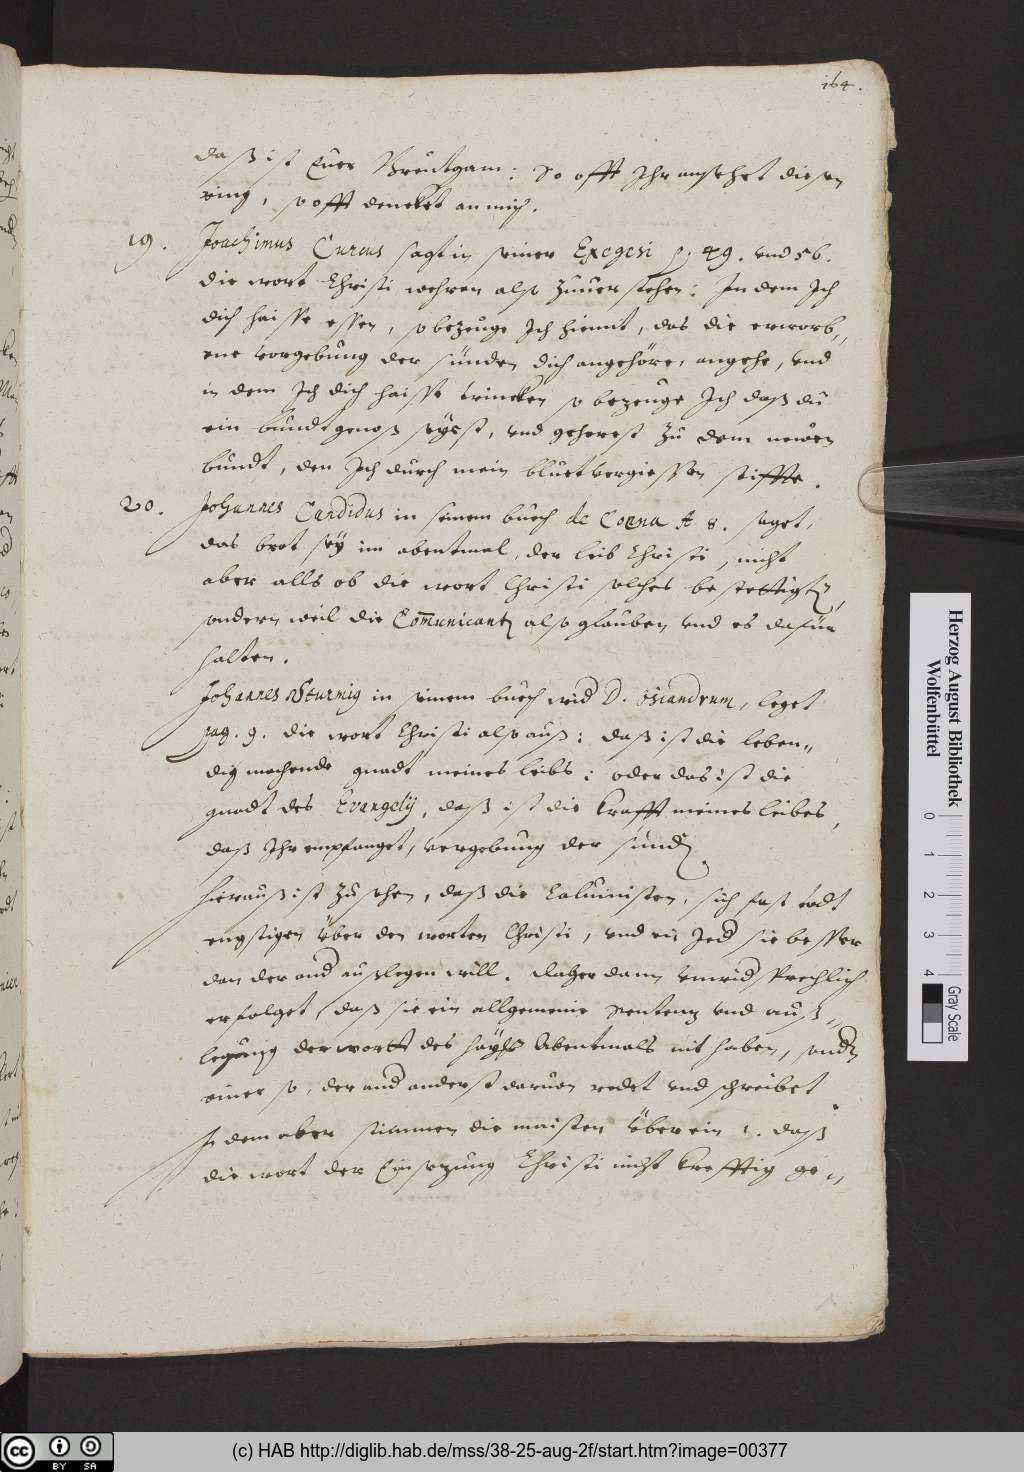 164.
daß ist Euer Breutgam: So offt Ihr ansehet diesen
ring, so offt dencket an mich.
19. Joachimus Cureus sagt in seiner Exegesi p. 49. vnd 56.
die wort Christi wehren also zuuerstehen: In dem Ich
dich haisse essen, so bezeuge Ich hiemit, das die erworb„
ene vorgebung der sünden dich angehöre, angehe, vnd
in dem Ich dich haisse trincken so bezeuge Ich daß du
ein bundtgenoß seyest, vnd geherest zu dem newen
bundt, den Ich durch mein bluet vergiessen stiffte.
20. Johannes Candidus in seinem buech de Coena A 8. saget,
das brot sey im abentmal, der leib Christi, nicht
aber alls ob die wort Christi solches bestettigt,
sondern weil die Com̄unicant also glauben vnd es dafür
halten.
Johannes Sturmig in seinem buech wid D. Osiandrum, leget
pag. 9. die wort Christi also auß: daß ist die leben„
dig machende gnadt meines leibs: oder das ist die
gnadt des Evangelij, daß ist die krafft meines leibes,
daß Ihr empfanget, vergebung der sünd.
Hierauß ist zu sehen, daß die Caluinisten, sich fast todt
engstigen über den worten Christi, vnd ein Jed sie besser
dan der and außlegen will. Daher dann vnwidsprechlich
erfolget, daß sie ein allgemeine sentenz vnd auß„
legung der wortt des hayl Abentmals nit haben, sond
einer so, der and anderst daruon redet vnd schreibet.
In dem aber stimmen die maisten überein 1. daß
die wort der Einsezung Christi nicht krefftig ge„
Herzog August Bibliothek
Wolfenbüttel
0 1 2 3 4
Gray Scale
cc BY SA
(c) HAB http://diglib.hab.de/mss/38-25-aug-2f/start.htm?image=00377